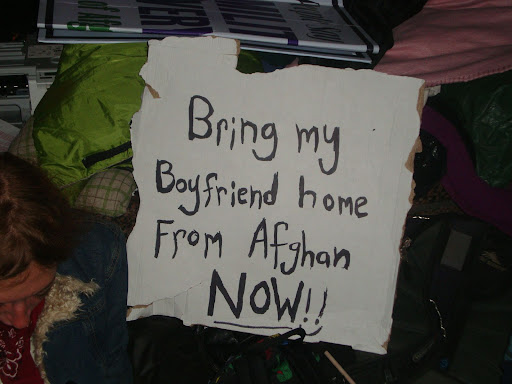 Bring my
Boyfriend home
From Afghan
NOW!!